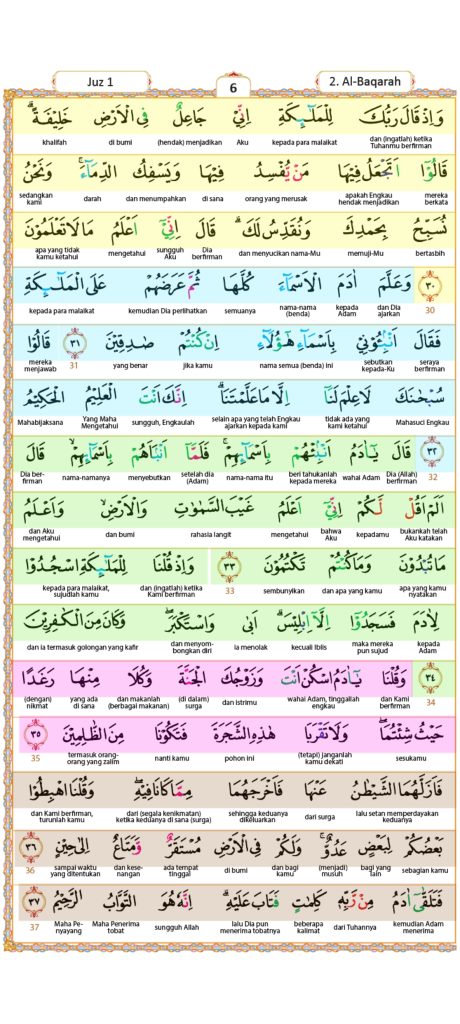 Juz 1
6
2. Al-Baqarah
وَاِذْ قَالَ رَبُّكَ لِلْمَلٰۤىِٕكَةِ اِنِّيْ جَاعِلٌ فِى الْاَرْضِ خَلِيْفَةًۗ
dan (ingatlah) ketika Tuhanmu berfirman kepada para malaikat Aku (hendak) menjadikan di bumi khalifah
قَالُوْٓا اَتَجْعَلُ فِيْهَا مَنْ يُّفْسِدُ فِيْهَا وَيَسْفِكُ الدِّمَاۤءَۚ وَنَحْنُ
mereka berkata apakah Engkau hendak menjadikan orang yang merusak di sana dan menumpahkan darah sedangkan kami
نُسَبِّحُ بِحَمْدِكَ وَنُقَدِّسُ لَكَۗ قَالَ اِنِّيْٓ اَعْلَمُ مَا لَا تَعْلَمُوْنَ
bertasbih memuji-Mu dan menyucikan nama-Mu Dia berfirman sungguh Aku mengetahui apa yang tidak kamu ketahui
٣٠ وَعَلَّمَ اٰدَمَ الْاَسْمَاۤءَ كُلَّهَا ثُمَّ عَرَضَهُمْ عَلَى الْمَلٰۤىِٕكَةِ
30 dan Dia ajarkan kepada Adam nama-nama (benda) semuanya kemudian Dia perlihatkan kepada para malaikat
فَقَالَ اَنْۢبِـُٔوْنِيْ بِاَسْمَاۤءِ هٰٓؤُلَاۤءِ اِنْ كُنْتُمْ صٰدِقِيْنَ ٣١ قَالُوْا
seraya berfirman sebutkan kepada-Ku nama semua (benda) ini jika kamu yang benar 31 mereka menjawab
سُبْحٰنَكَ لَا عِلْمَ لَنَآ اِلَّا مَا عَلَّمْتَنَاۗ اِنَّكَ اَنْتَ الْعَلِيْمُ الْحَكِيْمُ
Mahasuci Engkau tidak ada yang kami ketahui selain apa yang telah Engkau ajarkan kepada kami sungguh, Engkaulah Yang Maha Mengetahui Mahabijaksana
٣٢ قَالَ يٰٓاٰدَمُ اَنْۢبِئْهُمْ بِاَسْمَاۤىِٕهِمْۚ فَلَمَّآ اَنْۢبَاَهُمْ بِاَسْمَاۤىِٕهِمْۙ قَالَ
32 Dia (Allah) berfirman wahai Adam beri tahukanlah kepada mereka nama-nama itu setelah dia (Adam) menyebutkan nama-namanya Dia ber-firman
اَلَمْ اَقُلْ لَّكُمْ اِنِّيْٓ اَعْلَمُ غَيْبَ السَّمٰوٰتِ وَالْاَرْضِۙ وَاَعْلَمُ
bukankah telah Aku katakan kepadamu bahwa Aku mengetahui rahasia langit dan bumi dan Aku mengetahui
مَا تُبْدُوْنَ وَمَا كُنْتُمْ تَكْتُمُوْنَ ٣٣ وَاِذْ قُلْنَا لِلْمَلٰۤىِٕكَةِ اسْجُدُوْا
apa yang kamu nyatakan dan apa yang kamu sembunyikan 33 dan (ingatlah) ketika Kami berfirman kepada para malaikat, sujudlah kamu
لِاٰدَمَ فَسَجَدُوْٓا اِلَّآ اِبْلِيْسَۗ اَبٰى وَاسْتَكْبَرَۖ وَكَانَ مِنَ الْكٰفِرِيْنَ
kepada Adam maka mereka pun sujud kecuali Iblis ia menolak dan menyom-bongkan diri dan ia termasuk golongan yang kafir
٣٤ وَقُلْنَا يٰٓاٰدَمُ اسْكُنْ اَنْتَ وَزَوْجُكَ الْجَنَّةَ وَكُلَا مِنْهَا رَغَدًا
34 dan Kami berfirman wahai Adam, tinggallah engkau dan istrimu (di dalam) surga dan makanlah (berbagai makanan) yang ada di sana (dengan) nikmat
حَيْثُ شِئْتُمَاۖ وَلَا تَقْرَبَا هٰذِهِ الشَّجَرَةَ فَتَكُوْنَا مِنَ الظّٰلِمِيْنَ ٣٥
sesukamu (tetapi) janganlah kamu dekati pohon ini nanti kamu termasuk orang-orang yang zalim 35
فَاَزَلَّهُمَا الشَّيْطٰنُ عَنْهَا فَاَخْرَجَهُمَا مِمَّا كَانَا فِيْهِۖ وَقُلْنَا اهْبِطُوْا
lalu setan memperdayakan keduanya dari surga sehingga keduanya dikeluarkan dari (segala kenikmatan) ketika keduanya di sana (surga) dan Kami berfirman, turunlah kamu
بَعْضُكُمْ لِبَعْضٍ عَدُوٌّۚ وَلَكُمْ فِى الْاَرْضِ مُسْتَقَرٌّ وَّمَتَاعٌ اِلٰى حِيْنٍ ٣٦
sebagian kamu bagi yang lain (menjadi) musuh dan bagi kamu di bumi ada tempat tinggal dan kese-nangan sampai waktu yang ditentukan 36
فَتَلَقّٰٓى اٰدَمُ مِنْ رَّبِّهٖ كَلِمٰتٍ فَتَابَ عَلَيْهِۗ اِنَّهٗ هُوَ التَّوَّابُ الرَّحِيْمُ ٣٧
kemudian Adam menerima dari Tuhannya beberapa kalimat lalu Dia pun menerima tobatnya sungguh Allah Maha Penerima tobat Maha Pe-nyayang 37